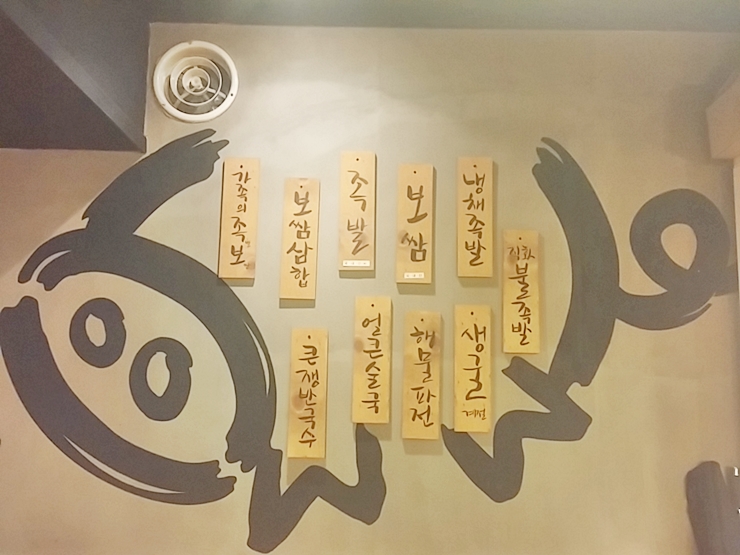 가족의 족보
보쌈삼합
족발
보쌈
냉채족발
직화
불족발
큰쟁반국수
얼큰술국
해물파전
생굴
계절